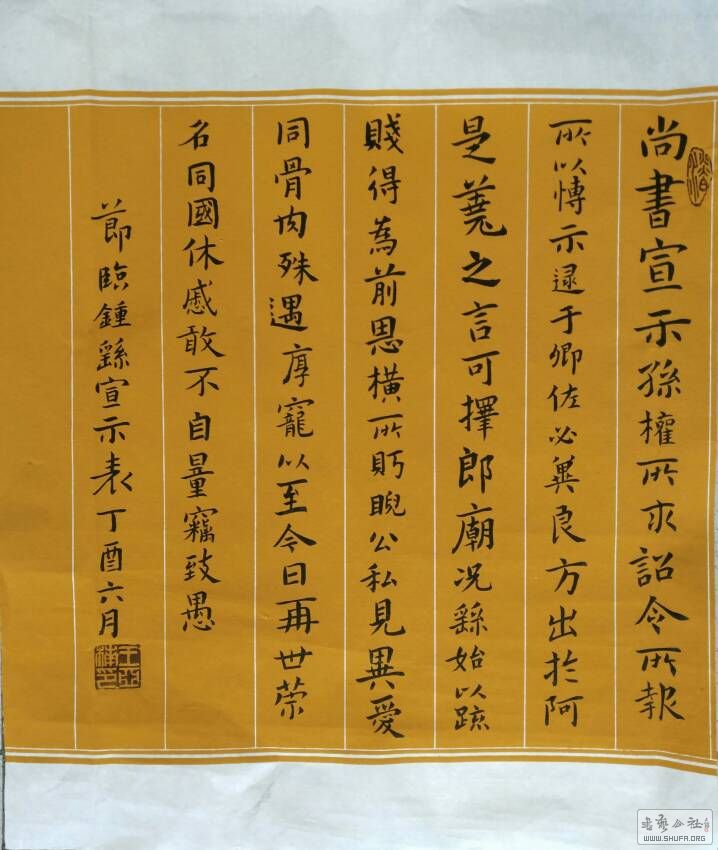 尚書宣示孫權所求詔令所報
所以博示逮于卿佐必冀良方出於阿
是蒭之言可擇郎廟况繇始以䟽
賤得為前恩橫所眄睨公私見異愛
同骨肉殊遇厚寵以至今日再世荣
名同國休慼敢不自量竊致愚
節臨鍾繇宣示表丁酉六月
書藝公社
WWW.SHUFA.ORG